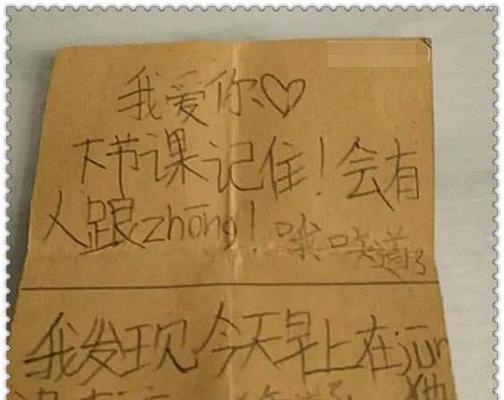 我爱你♡
下节课记住！会有
人跟zhōng！哦 道了
我发现今天早上在jūn